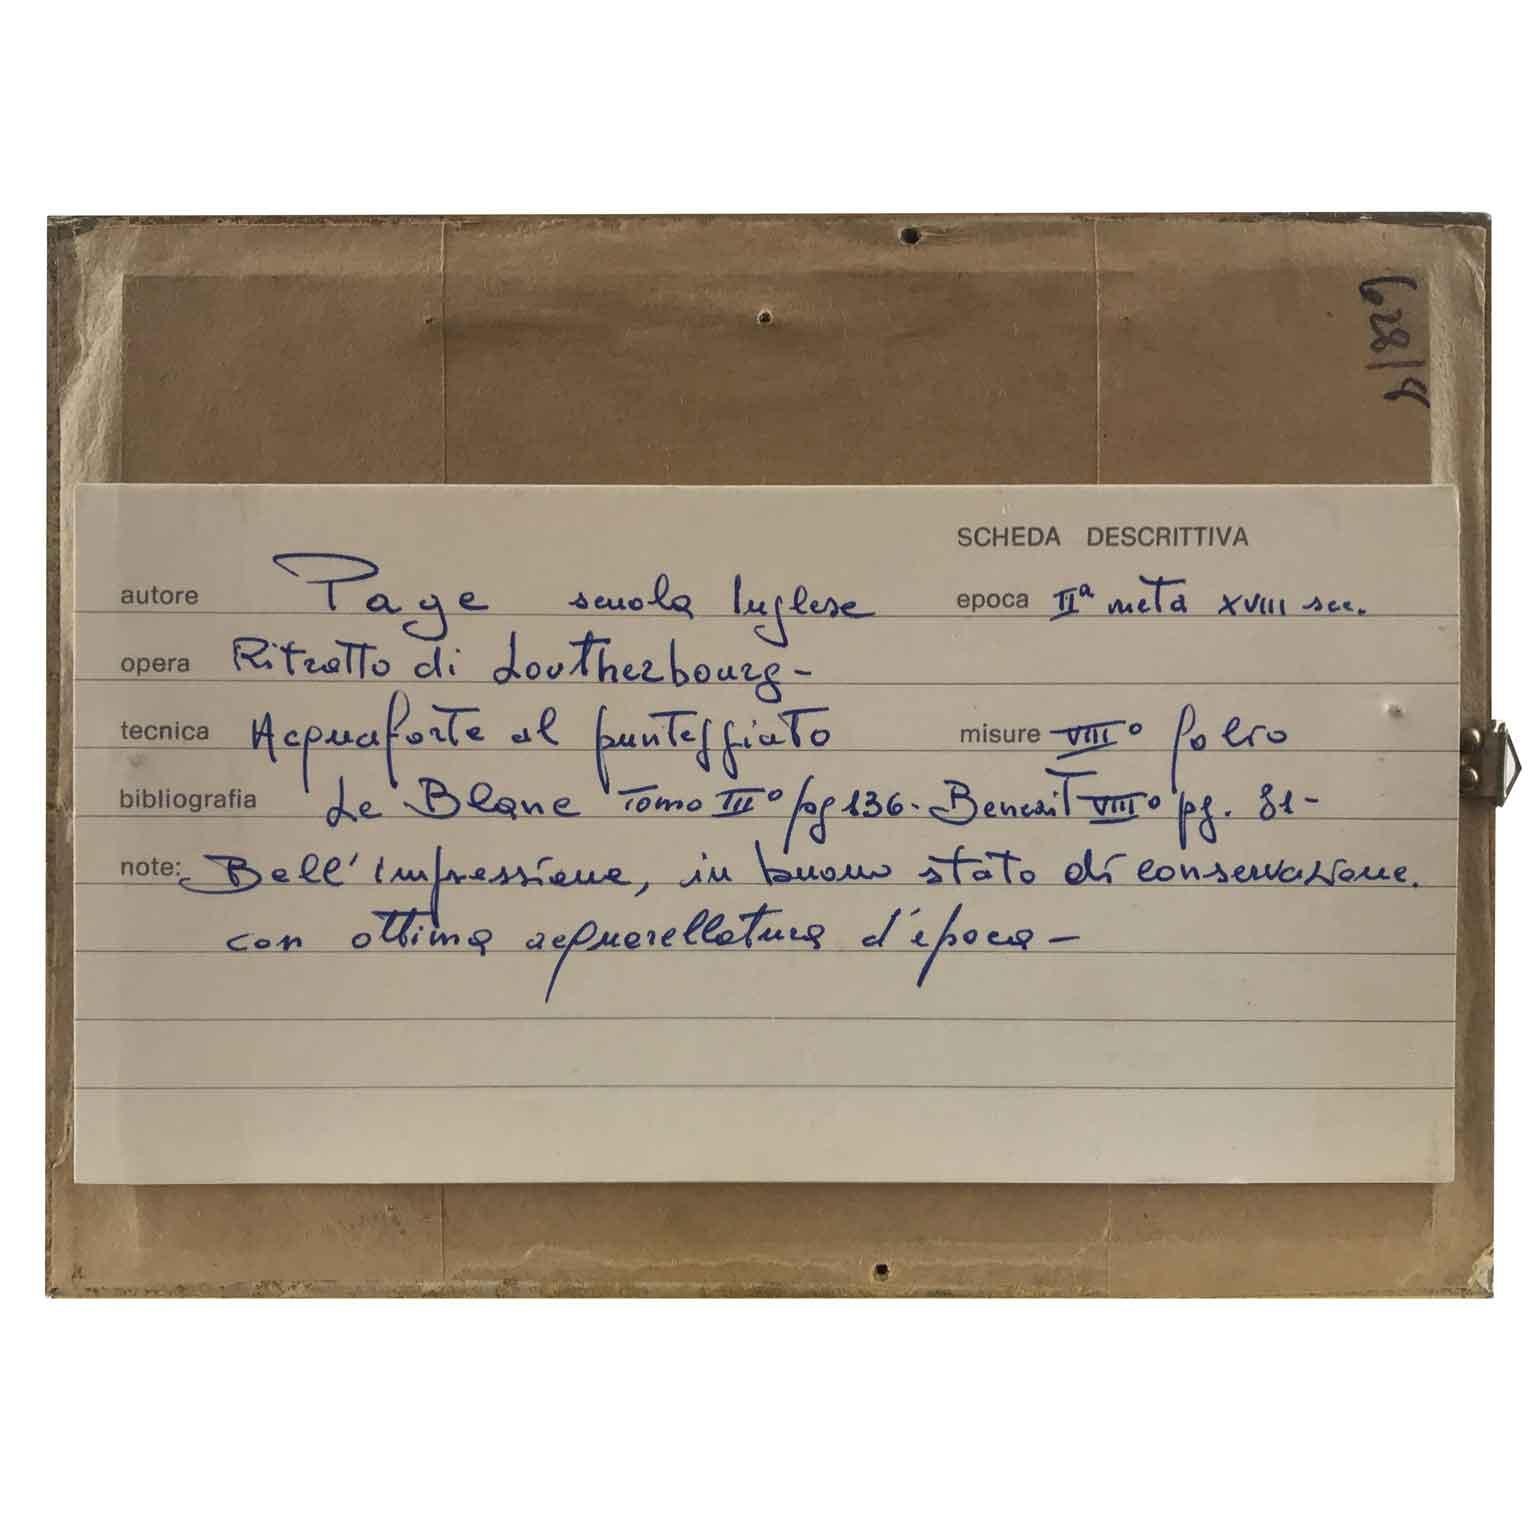 628/4
SCHEDA DESCRITTIVA
autore Page scuola Inglese epoca IIª metà XVIII sec.
opera Ritratto di Loutherbourg -
tecnica Acquaforte al punteggiato misure VIII° folio
bibliografia Le Blanc Tomo III° pg 136 - Benezit VIII° pg. 81 -
note: Bell'impressione, in buono stato di conservazione.
con ottima acquarellatura d'epoca -